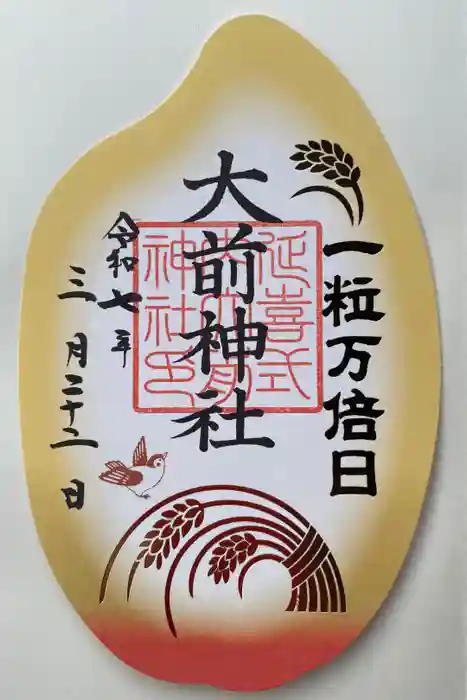 一粒万倍日
大前神社
延喜式
内大前
神社印
令和七年
三月二十二日